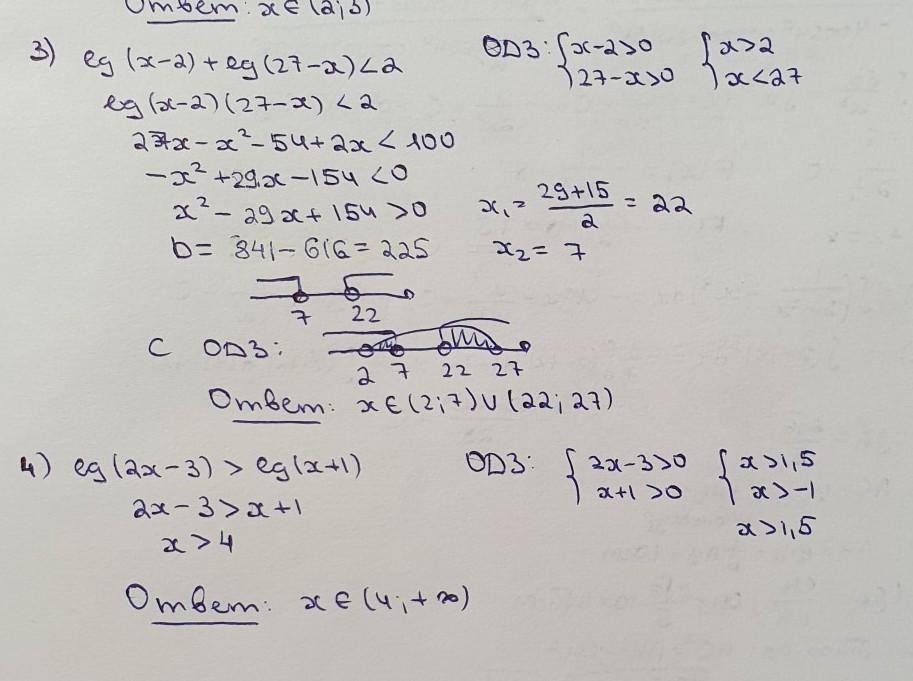 Ответ: x ∈ (2; 3)
3) lg (x-2) + lg (27-x) < 2 ОДЗ: { x-2>0 { x>2
27-x>0 x<27
lg (x-2) (27-x) < 2
27x - x² - 54 + 2x < 100
-x² + 29x - 154 < 0
x² - 29x + 154 > 0 x₁ = (29+15)/2 = 22
D = 841 - 616 = 225 x₂ = 7
7 22
С ОДЗ:
2 7 22 27
Ответ: x ∈ (2; 7) ∪ (22; 27)
4) lg (2x-3) > lg (x+1) ОДЗ: { 2x-3>0 { x>1,5
2x-3 > x+1 x+1>0 x>-1
x > 4 x>1,5
Ответ: x ∈ (4; +∞)